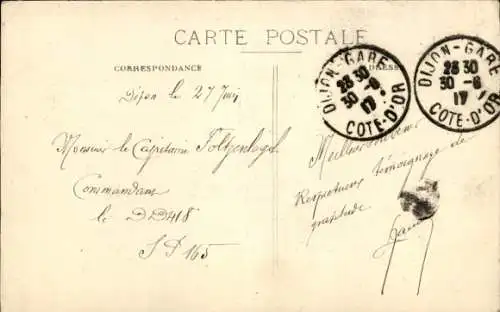 CARTE POSTALE
CORRESPONDANCE
ADRESSE
DIJON-GARE
23 30
30 -6
17
COTE-D'OR
DIJON-GARE
23 30
30 -6
17
COTE-D'OR
Dijon le 27 Juin
Monsieur le Capitaine
Commandant
le DD418
SP 165
Meilleur souvenir
Respectueux témoignage de
gratitude